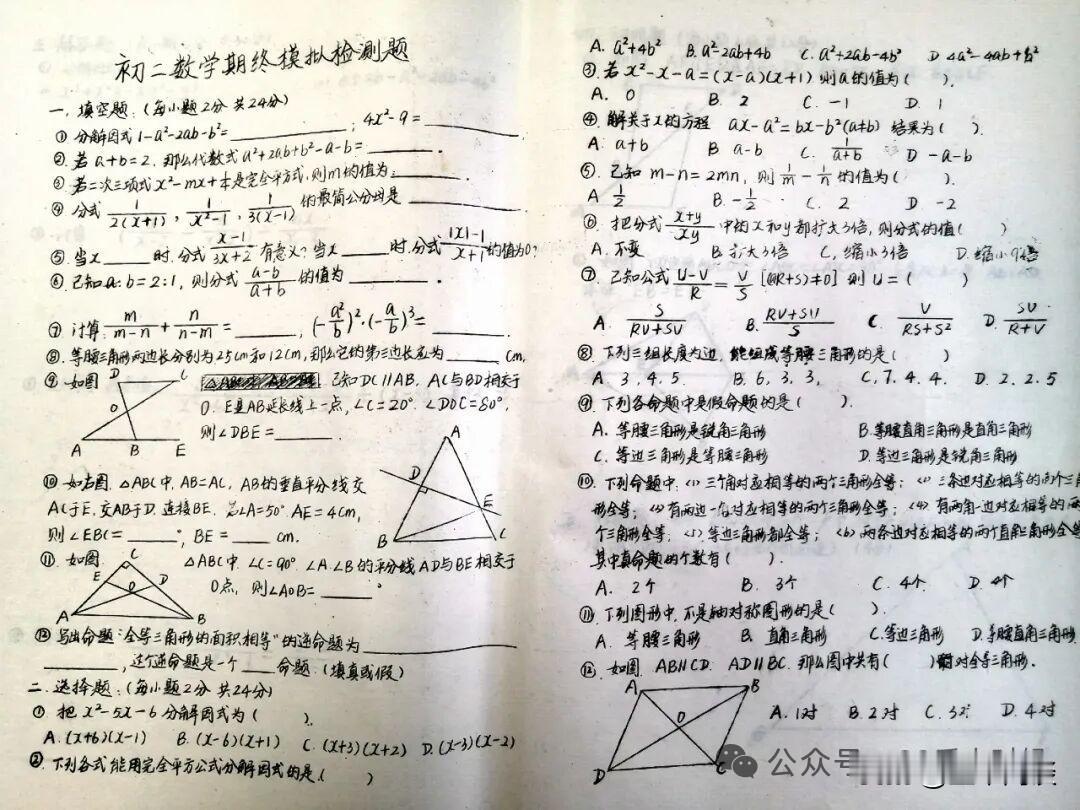 初二数学期终模拟检测题
一、填空题:(每小题2分 共24分)
① 分解因式 1-a²-2ab-b²=________; 4x²-9=________
②. 若 a+b=2, 那么代数式 a²+2ab+b²-a-b=________.
③. 若二次三项式 x²-mx+ 是完全平方式,则m的值为________.
④ 分式 1/2(x+1), 1/x²-1, 1/3(x-1) 的最简公分母是________
⑤. 当x____时,分式 x-1/3x+2 有意义?当x____时,分式 |x|-1/x+1 的值为0?
⑥. 已知a:b=2:1, 则分式 a-b/a+b 的值为________.
⑦ 计算: m/m-n + n/n-m =______, (-a²/b)²·(-a/b)³=______
⑧. 等腰三角形两边长分别为25cm和12cm,那么它的第三边长应为____cm.
⑨ 如图 已知DC∥AB, AC与BD相交于
O. E是AB延长线上一点,∠C=20°. ∠DOC=80°,
则∠DBE=______.
D C O A B E
⑩ 如右图. △ABC中, AB=AC, AB的垂直平分线交
AC于E, 交AB于D. 连接BE. ∠A=50° AE=4cm,
则∠EBC=____°, BE=____cm.
A D E B C
⑪ 如图 △ABC中. ∠C=90°. ∠A.∠B的平分线AD与BE相交于
O点, 则∠AOB=____°
C E D O A B
⑫ 写出命题“全等三角形的面积相等”的逆命题为________
________, 这个逆命题是一个____命题.(填真或假)
二. 选择题:(每小题2分 共24分)
① 把 x²-5x-6 分解因式为( ).
A. (x+6)(x-1) B. (x-6)(x+1) C. (x+3)(x+2) D. (x-3)(x-2)
② 下列各式能用完全平方公式分解因式的是( )
A. a²+4b² B. a²-2ab+4b C. a²+2ab-4b² D 4a²-4ab+b²
③ 若 x²-x-a=(x-a)(x+1) 则a的值为( ).
A. 0 B. 2 C. -1 D. 1
④. 解关于x的方程 ax-a²=bx-b²(a≠b) 结果为( ).
A. a+b B a-b C. 1/a+b D -a-b
⑤. 已知 m-n=2mn, 则 1/m-1/n 的值为( ).
A 1/2 B. -1/2 C. 2 D -2
⑥ 把分式 x+y/xy 中的x和y都扩大3倍,则分式的值( )
A. 不变 B. 扩大3倍 C, 缩小3倍 D. 缩小9倍
⑦ 已知公式 U-V/R = V/S [(R+S)≠0] 则U=( )
A. S/RV+SV B. RV+SV/S C. V/RS+S² D. SV/R+V
⑧ 下列三组长度为边, 能组成等腰三角形的是( ).
A. 3, 4. 5. B. 6, 3, 3, C, 7. 4. 4. D. 2. 2. 5
⑨. 下列各命题中是假命题的是( ).
A. 等腰三角形是锐角三角形 B. 等腰直角三角形是直角三角形
C. 等边三角形是等腰三角形 D. 等边三角形是锐角三角形
⑩. 下列命题中. (1) 三个角对应相等的两个三角形全等; (2) 三条边对应相等的两个三角
形全等; (3) 有两边一角对应相等的两个三角形全等; (4) 有两角一边对应相等的两
个三角形全等. (5) 等边三角形都全等; (6) 两条边对应相等的两个直角三角形全等
其中真命题的个数有( ).
A. 2个 B. 3个 C. 4个 D. 4个
⑪ 下列图形中. 不是轴对称图形的是( ).
A. 等腰三角形 B. 直角三角形 C. 等边三角形 D. 等腰直角三角形
⑫. 如图. AB∥CD. AD∥BC. 那么图中共有( )对全等三角形.
A. 1对 B. 2对 C. 3对 D. 4对
A B O D C
公众号